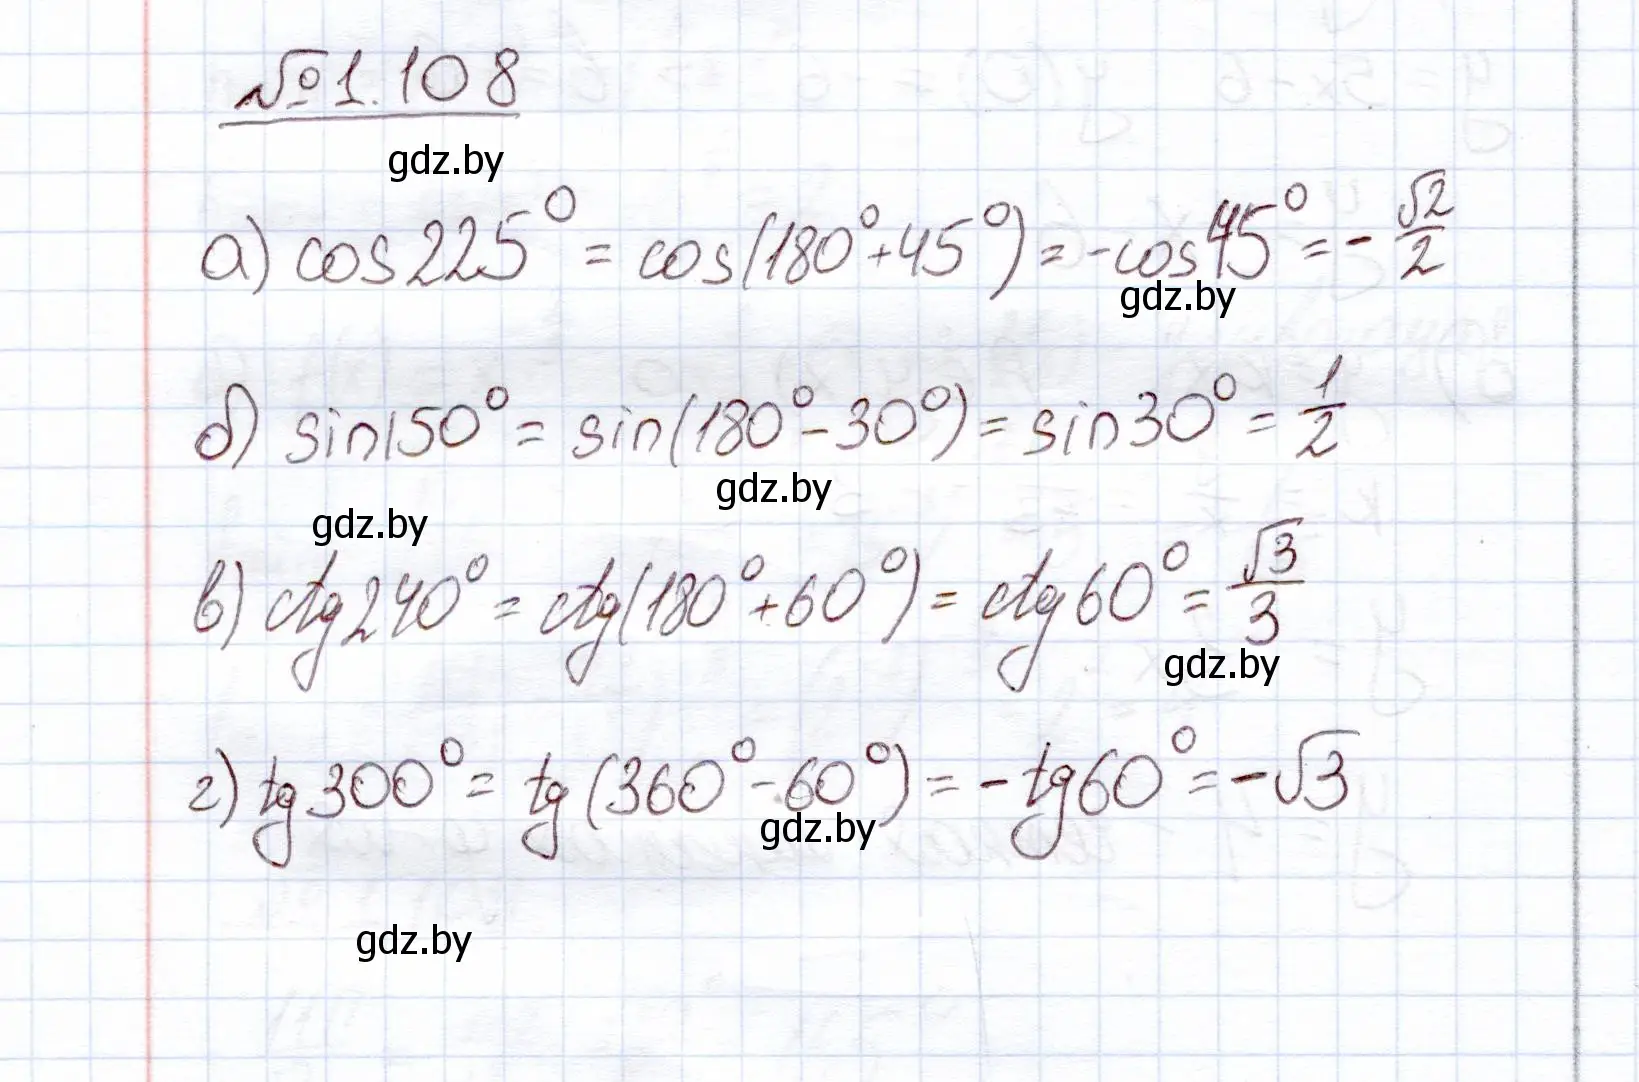 №1.108
gdz.by
а) cos225° = cos(180°+45°) = -cos45° = -√2/2
gdz.by
б) sin150° = sin(180°-30°) = sin30° = 1/2
gdz.by
gdz.by
в) ctg240° = ctg(180°+60°) = ctg60° = √3/3
gdz.by
г) tg300° = tg(360°-60°) = -tg60° = -√3
gdz.by
gdz.by